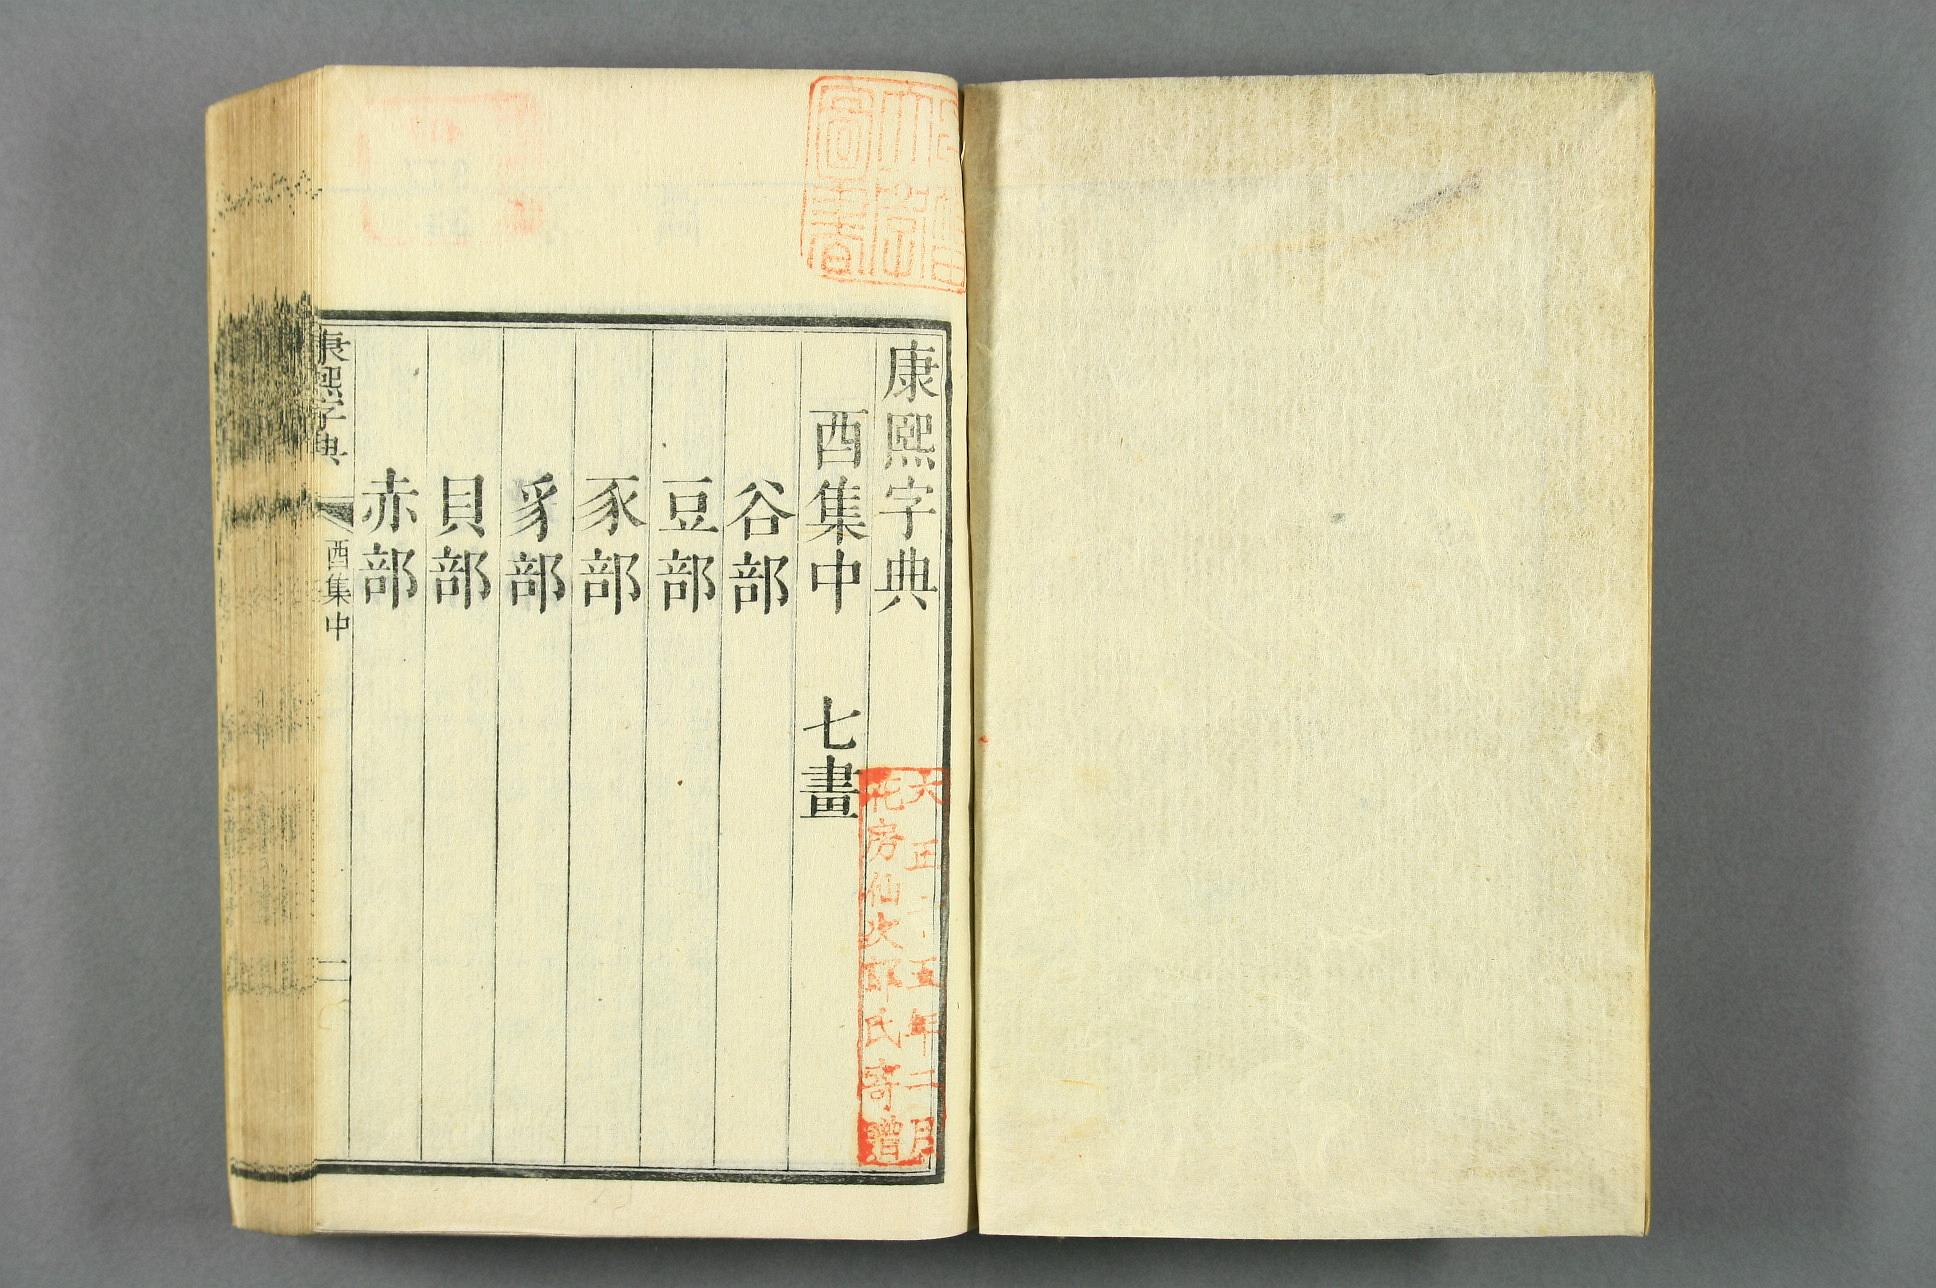 康熙字典
酉集中 七畫
谷部
豆部
豕部
豸部
貝部
赤部
康熙字典 酉集中
大正十五年二月
花房仙次郎氏寄贈
圖書